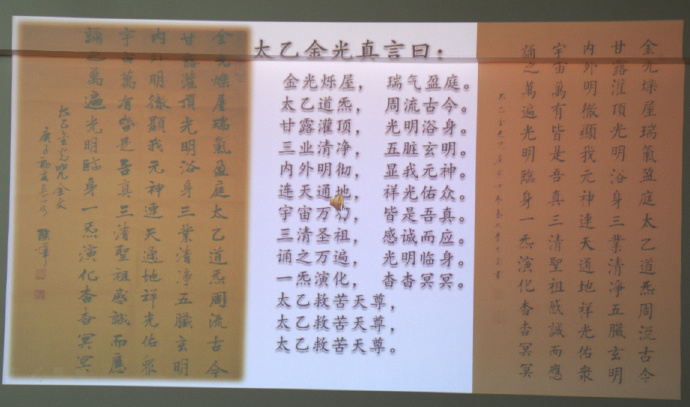 金光爍屋瑞氣盈庭太乙道炁周流古今
甘露灌頂光明浴身三業清淨五臟玄明
内外明徹顯我元神連天通地祥光佑衆
宇宙萬有皆是吾真三清聖祖感誠而應
誦之萬遍光明臨身一炁演化杳杳冥冥
太乙金光咒全文
太乙金光真言曰：
金光烁屋， 瑞气盈庭。
太乙道炁， 周流古今。
甘露灌顶， 光明浴身。
三业清净， 五脏玄明。
内外明彻， 显我元神。
连天通地， 祥光佑众。
宇宙万幻， 皆是吾真。
三清圣祖， 感诚而应。
诵之万遍， 光明临身。
一炁演化， 杳杳冥冥。
太乙救苦天尊，
太乙救苦天尊，
太乙救苦天尊。
金光爍屋瑞氣盈庭太乙道炁周流古今
甘露灌頂光明浴身三業清淨五臟玄明
内外明徹顯我元神連天通地祥光佑衆
宇宙萬有皆是吾真三清聖祖感誠而應
誦之萬遍光明臨身一炁演化杳杳冥冥